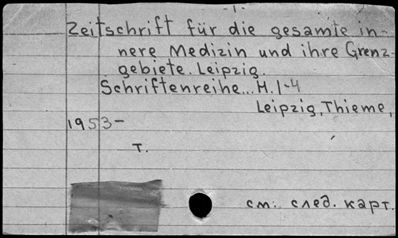 Zeitschrift für die gesamte in-
nere Medizin und ihre Grenz-
gebiete. Leipzig.
Schriftenreihe... H. 1-4
Leipzig, Thieme,
1953-
T.
см. след. карт.